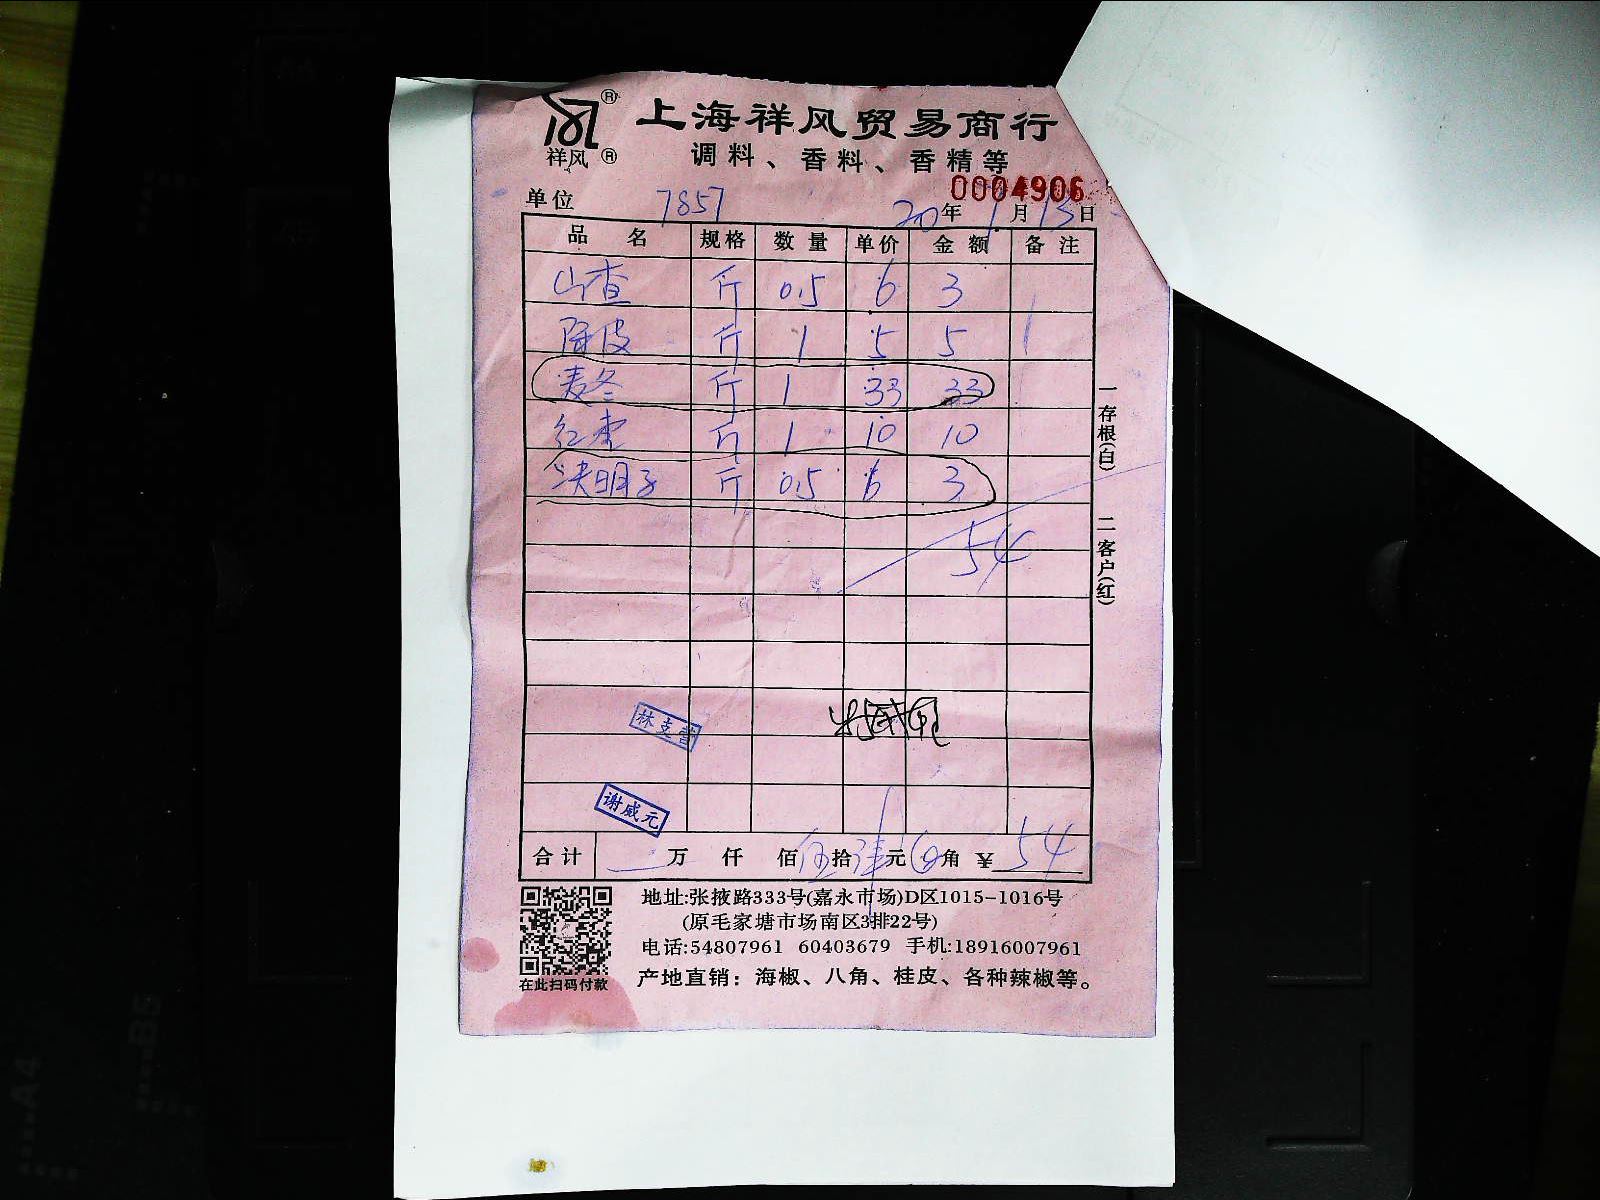 上海祥风贸易商行
祥风 ® ®
调料、香料、香精等
0004906
单位 7857 20年1月13日
品名 规格 数量 单价 金额 备注
山查 斤 0.5 6 3
陈皮 斤 1 5 5
麦冬 斤 1 33 33
红枣 斤 1 10 10
决明子 斤 0.5 6 3
54
一存根(白) 二客户(红)
林支营
谢威元
合计 万 仟 佰 伍拾肆元 角 ¥54
地址:张掖路333号(嘉永市场)D区1015-1016号
(原毛家塘市场南区3排22号)
电话:54807961 60403679 手机:18916007961
在此扫码付款 产地直销：海椒、八角、桂皮、各种辣椒等。
A4
B5